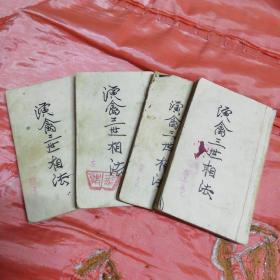 演禽三世相法
演禽三世相法
演禽三世相法
演禽三世相法